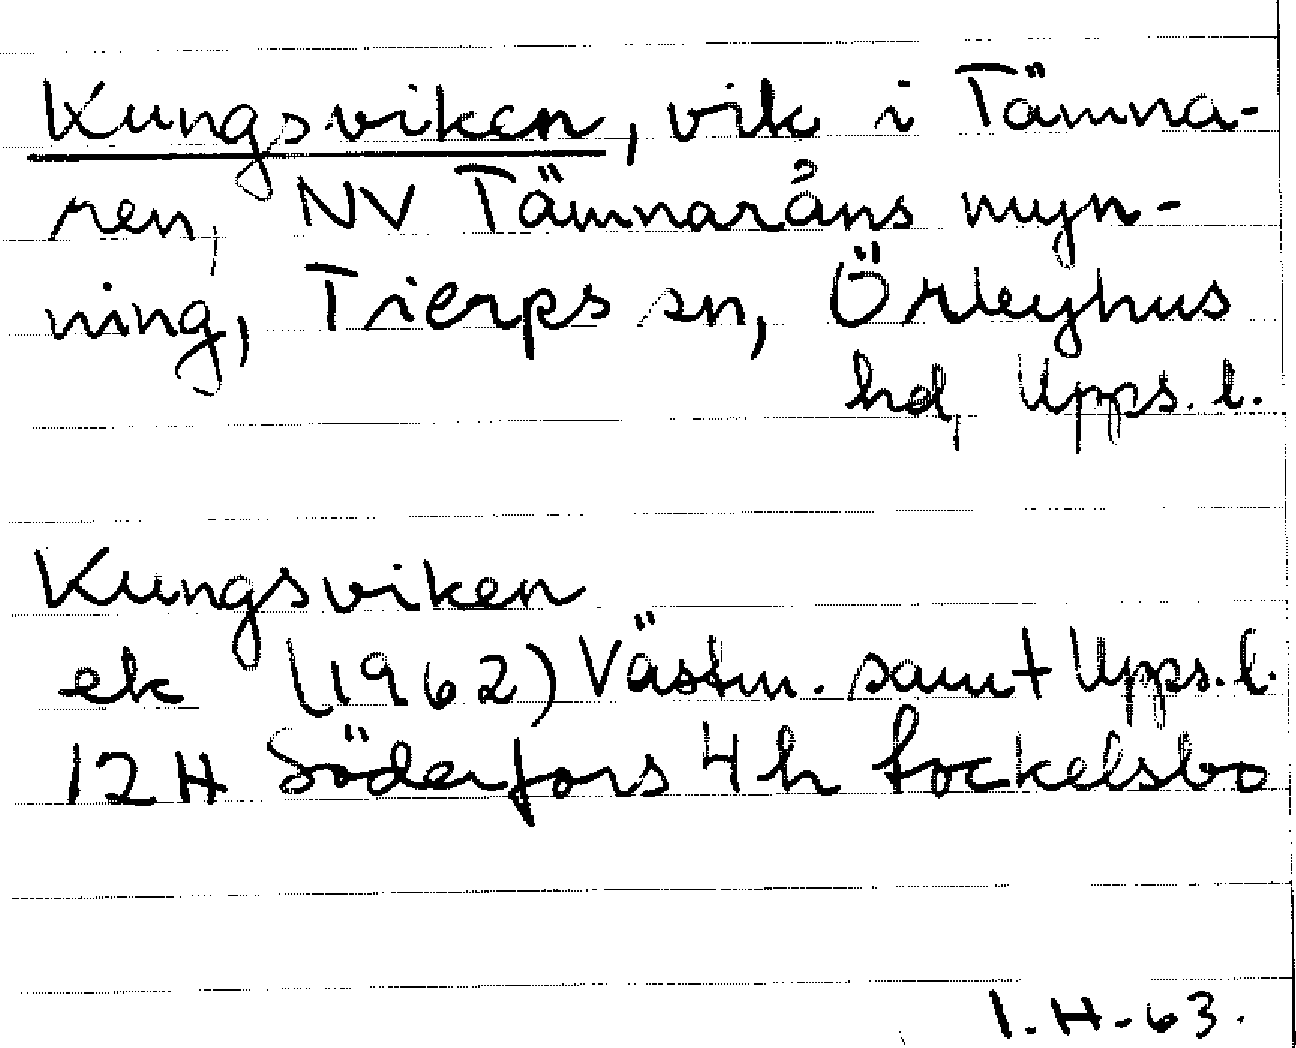 Kungsviken, vik i Tämna-
ren, NV Tämnaråns myn-
ning, Tierps sn, Örbyhus
hd, Upps. l.
Kungsviken
ek (1962) Västm. samt Upps. l.
12 H Söderfors 4 h Sockelsbo
I.H-63.